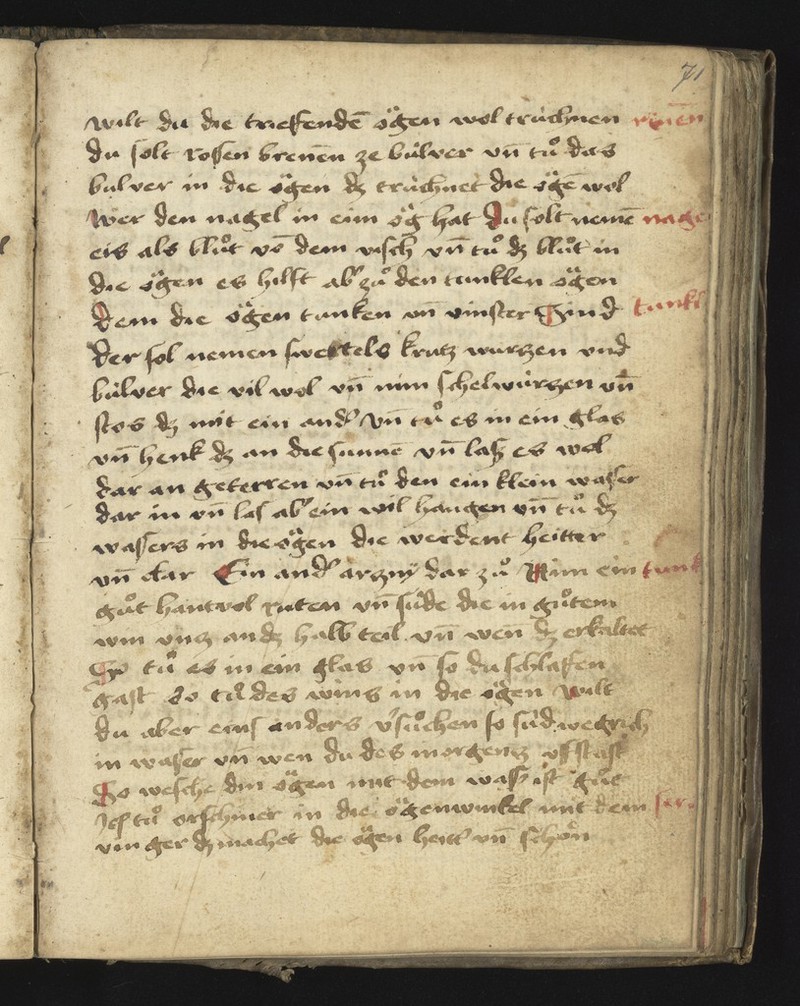 71
wilt du die trieffendē ögen wol trùchnen rÿnen
du solt rossen brenēn ze bùlver vn̄ tuͦ das
bulver in die ögen dz trùchnet die ögē wol
Wer den nagel in eim ög hat Du solt nemē nage
eis als bluͦt vō dem visch vn̄ tuͦ dz bluͦt in
die ögen es hilft ab' zuͦ den tunklen ögen
Dem die ögen tunken vn̄ vinster Sind tunkl
der sol nemen swertels krutz wurzen vnd
bùlver die vil wol vn̄ nim schelwùrzen vn̄
stos dz mit ein and' vn̄ tuͦ es in ein glas
vn̄ henk dz an die sunnē vn̄ lasz es wol
dar an geterren vn̄ tuͦ den ein klein wasser
dar in vn̄ las ab' ein wil hangen vn̄ tuͦ dz
wassers in die ögen die werdent heitter
vn̄ clar Ein and' arzny dar zuͦ Nim ein tunk
guͦt hantvol ruten vn̄ sùde die in guͦtem
win vntz an dz halb teil vn̄ wen̄ dz erkaltet
So tuͦ es in ein glas vn̄ so du schlaffen
gast So tuͦ des wins in die ögen Wilt
du aber eins anders v'suͦchen so sùd wegrich
in wasser vn̄ wen du des morgentz vfstast
So wesche din ögen mit dem wass' ist guͦt
tuͦ orschmer in die ögenwinkel mit dem
vinger dz machet die ögen heitt' vn̄ schön